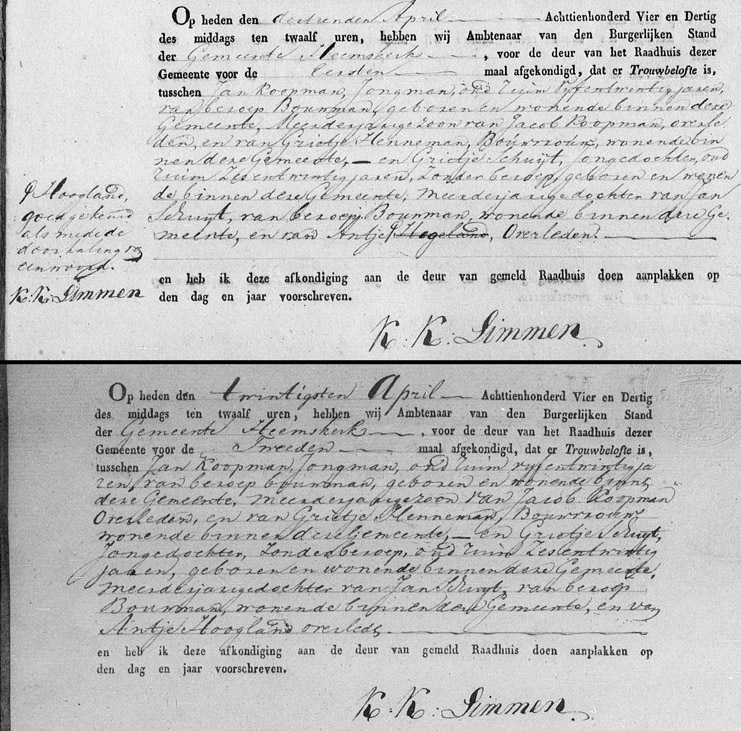 Op heden den dertienden April Achttienhonderd Vier en Dertig
des middags ten twaalf uren, hebben wij Ambtenaar van den Burgerlijken Stand
der Gemeente Heemskerk, voor de deur van het Raadhuis dezer
Gemeente voor de Eersten maal afgekondigd, dat er Trouwbelofte is,
tusschen Jan Koopman, Jongman, oud ruim vyfentwintig jaren,
van beroep Bouwman, geboren en wonende binnen deze
Gemeente, Meerderjarige zoon van Jacob Koopman, overle
den, en van Grietje Henneman, Bouwvrouw, wonende bin
nen deze Gemeente, — en Grietje Schuyt, Jongedochter, oud
ruim Zesentwintig jaren, zonder beroep, geboren en wonen
de binnen deze Gemeente, meerderjarige dochter van Jan
Schuyt, van beroep Bouwman, wonende binnen deze Ge
meente, en van Antje Hogeland, Overleden.
Hoogland,
goedgekeurd
als mede de
doorhaling van
een woord.
K. K. Limmen
en heb ik deze afkondiging aan de deur van gemeld Raadhuis doen aanplakken op
den dag en jaar voorschreven.
K. K. Limmen.
Op heden den twintigsten April Achttienhonderd Vier en Dertig
des middags ten twaalf uren, hebben wij Ambtenaar van den Burgerlijken Stand
der Gemeente Heemskerk, voor de deur van het Raadhuis dezer
Gemeente voor de Tweeden maal afgekondigd, dat er Trouwbelofte is,
tusschen Jan Koopman, Jongman, oud ruim vyfentwintig ja
ren, van beroep bouwman, geboren en wonende binnen
deze Gemeente, meerderjarige zoon van Jacob Koopman
Overleden, en van Grietje Henneman, Bouwvrouw,
wonende binnen deze Gemeente, — en Grietje Schuyt,
Jongedochter, zonder beroep, oud ruim Zesentwintig
jaren, geboren en wonende binnen deze Gemeente,
meerderjarige dochter van Jan Schuyt, van beroep
Bouwman, wonende binnen deze Gemeente, en van
Antje Hoogland overleden.
en heb ik deze afkondiging aan de deur van gemeld Raadhuis doen aanplakken op
den dag en jaar voorschreven.
K. K. Limmen.